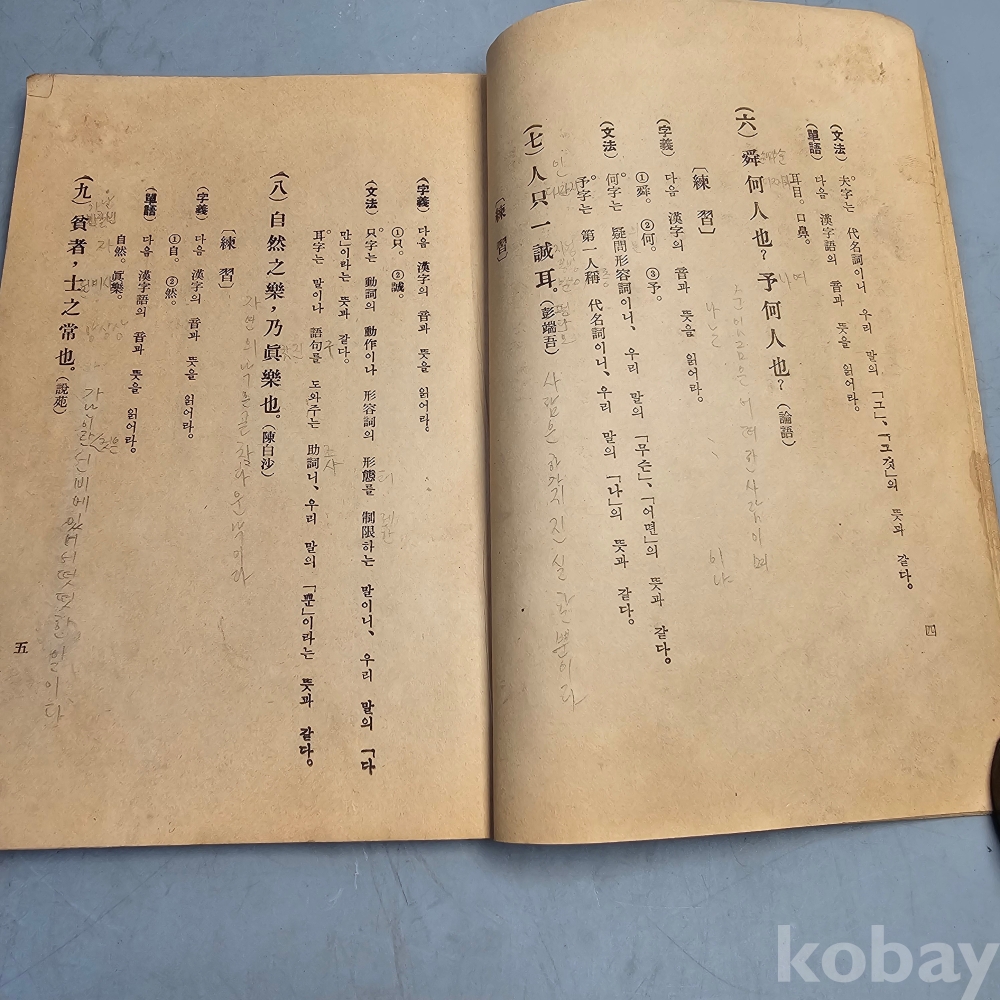 (文法) 夫字는 代名詞이니 우리 말의 「그」、「그것」의 뜻과 같다。
(單語) 다음 漢字語의 音과 뜻을 읽어라。
耳目。口鼻。
(六) 舜何人也？予何人也？(論語)
순임금은 어떠한 사람이며
나는
이냐
〔練習〕
(字義) 다음 漢字의 音과 뜻을 읽어라。
①舜。 ②何。 ③予。
(文法) 何字는 疑問形容詞이니、우리 말의 「무슨」、「어떤」의 뜻과 같다。
予字는 第一人稱 代名詞이니、우리 말의 「나」의 뜻과 같다。
(七) 人只一誠耳。(彭端吾)
사람은 하가지 진실 한뿐이다
〔練習〕
四
(字義) 다음 漢字의 音과 뜻을 읽어라。
①只。 ②誠。
(文法) 只字는 動詞의 動作이나 形容詞의 形態를 制限하는 말이니、우리 말의 「다
만」이라는 뜻과 같다。
耳字는 말이나 語句를 도와주는 助詞니、우리 말의 「뿐」이라는 뜻과 같다。
조사
(八) 自然之樂，乃眞樂也。(陳白沙)
자연의 낙은 곧 참다운 낙이라
〔練習〕
(字義) 다음 漢字의 音과 뜻을 읽어라。
①自。 ②然。
(單語) 다음 漢字語의 音과 뜻을 읽어라。
自然。眞樂。
(九) 貧者，士之常也。(說苑)
가난이란 것은 선비에 있어서 떳떳한 일이다
五
kobay